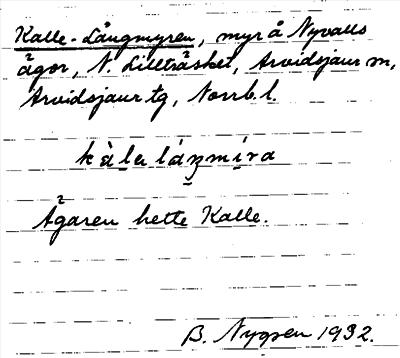 Kalle-Långmyren, myr å Nyvalls
ägor, N. Lillträsket, Arvidsjaur sn,
Arvidsjaur tg, Norrb. l.
kàla láŋmíra
Ägaren hette Kalle.
B. Nygren 1932.